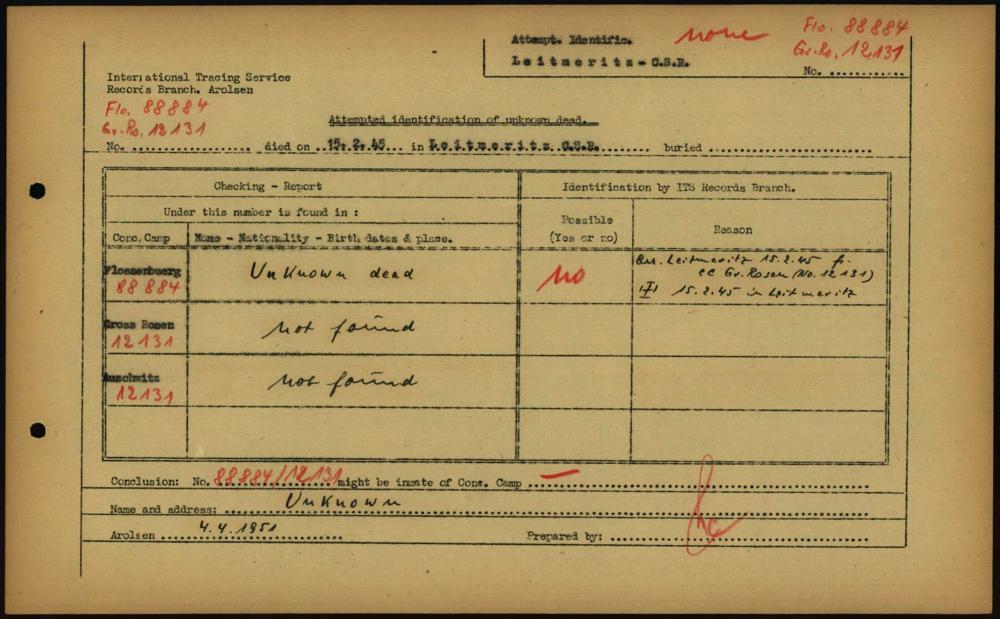 Attempt. Identific. none Flo. 88884
Leitmeritz - C.S.R. Gr.Ro. 12131
No. ............
International Tracing Service
Records Branch. Arolsen
Flo. 88884
Gr.Ro. 12131
Attempted identification of unknown dead.
No. .................... died on ..15.2.45... in Leitmeritz C.S.R......... buried ............................
Checking - Report
Identification by ITS Records Branch.
Under this number is found in :
Possible
(Yes or no)
Reason
Conc. Camp
Name - Nationality - Birth dates & place.
Flossenbuerg
88884
Unknown dead
no
Arr. Leitmeritz 15.2.45 fr.
CC Gr. Rosen (No. 12131)
15.2.45 in Leitmeritz
Gross Rosen
12131
not found
Auschwitz
12131
not found
Conclusion: No. 88884/12131 might be inmate of Conc. Camp — ............................
Name and address: .......... Unknown ............................
Arolsen ...... 4.4.1951 ............
Prepared by: ............................